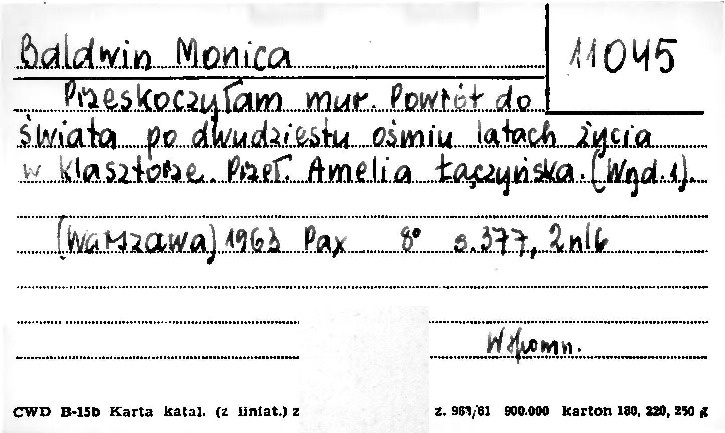 Baldwin Monica
11045
Przeskoczyłam mur. Powrót do
świata po dwudziestu ośmiu latach życia
w klasztorze. Przeł. Amelia Łączyńska. (Wyd. 1).
(Warszawa) 1963 Pax 8° s. 377, 2 nlb
Wspomn.
CWD B-15b Karta katal. (z liniat.) z z. 963/61 900.000 karton 180, 220, 250 g